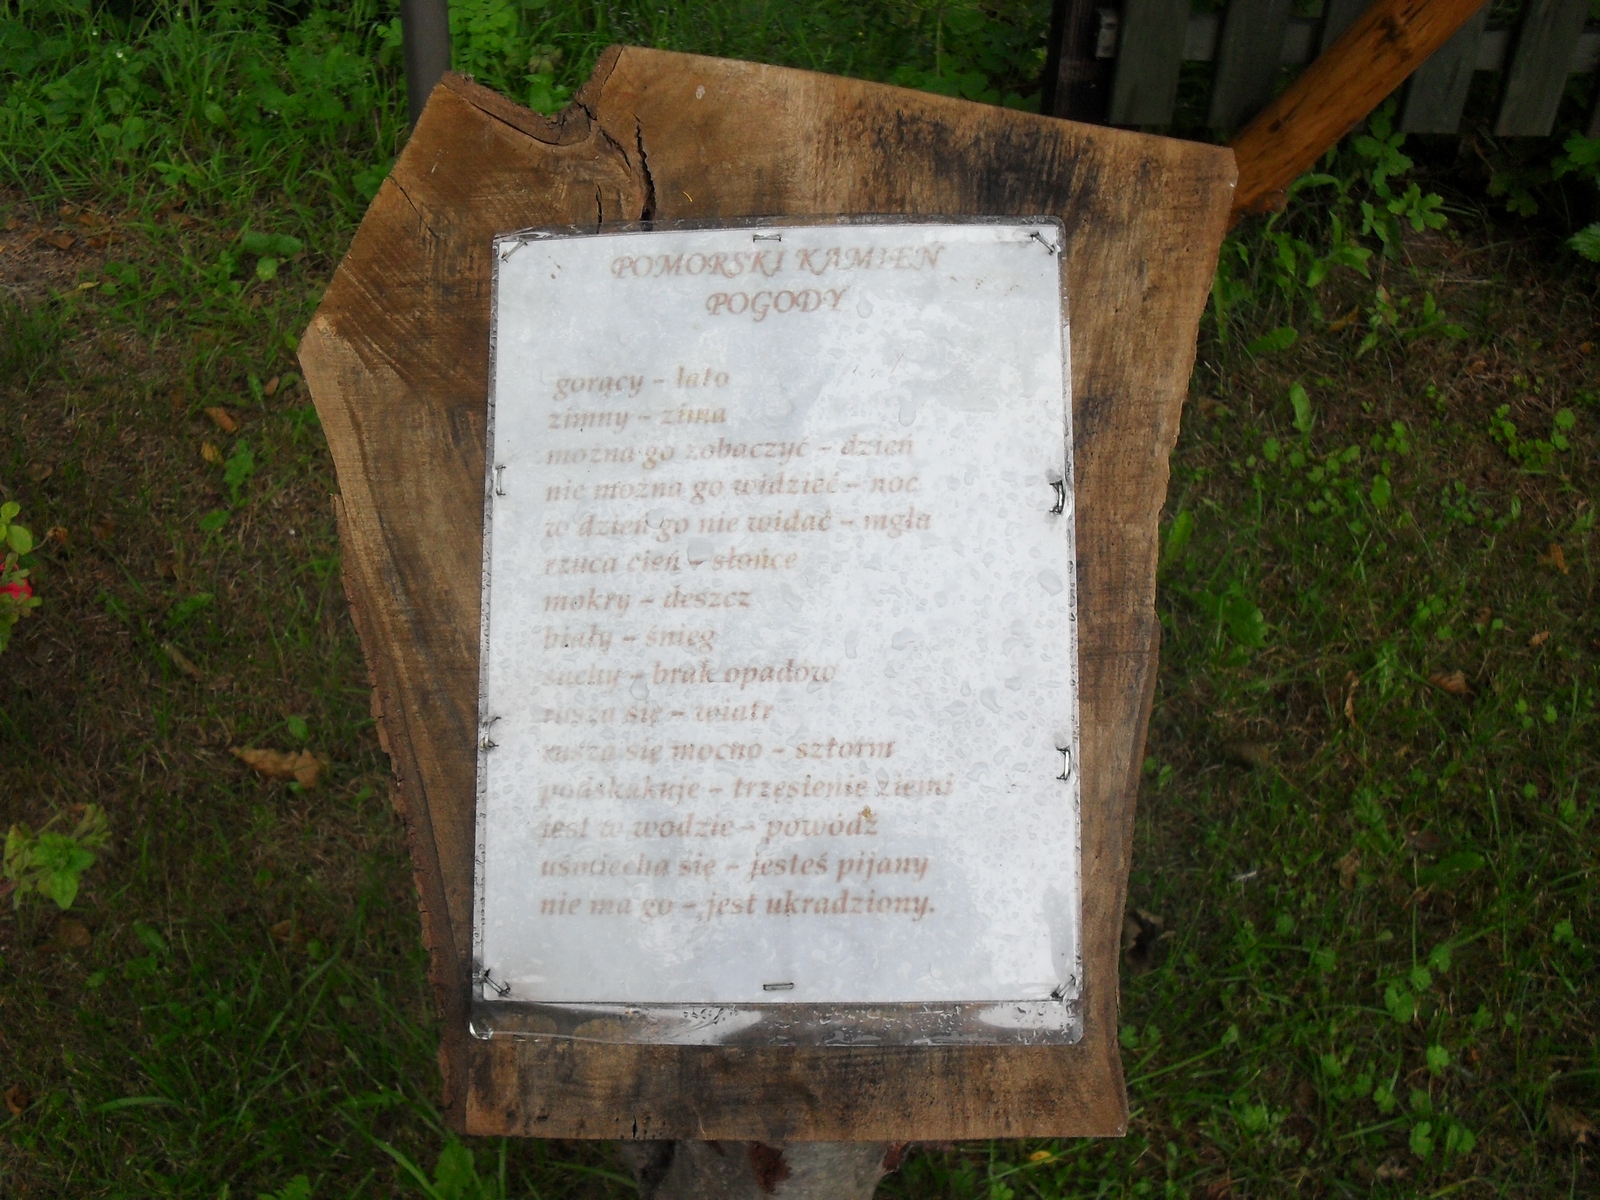 POMORSKI KAMIEŃ
POGODY
gorący – lato
zimny – zima
można go zobaczyć – dzień
nie można go widzieć – noc
w dzień go nie widać – mgła
rzuca cień – słońce
mokry – deszcz
biały – śnieg
suchy – brak opadów
rusza się – wiatr
rusza się mocno – sztorm
podskakuje – trzęsienie ziemi
jest w wodzie – powódź
uśmiecha się – jesteś pijany
nie ma go – jest ukradziony.